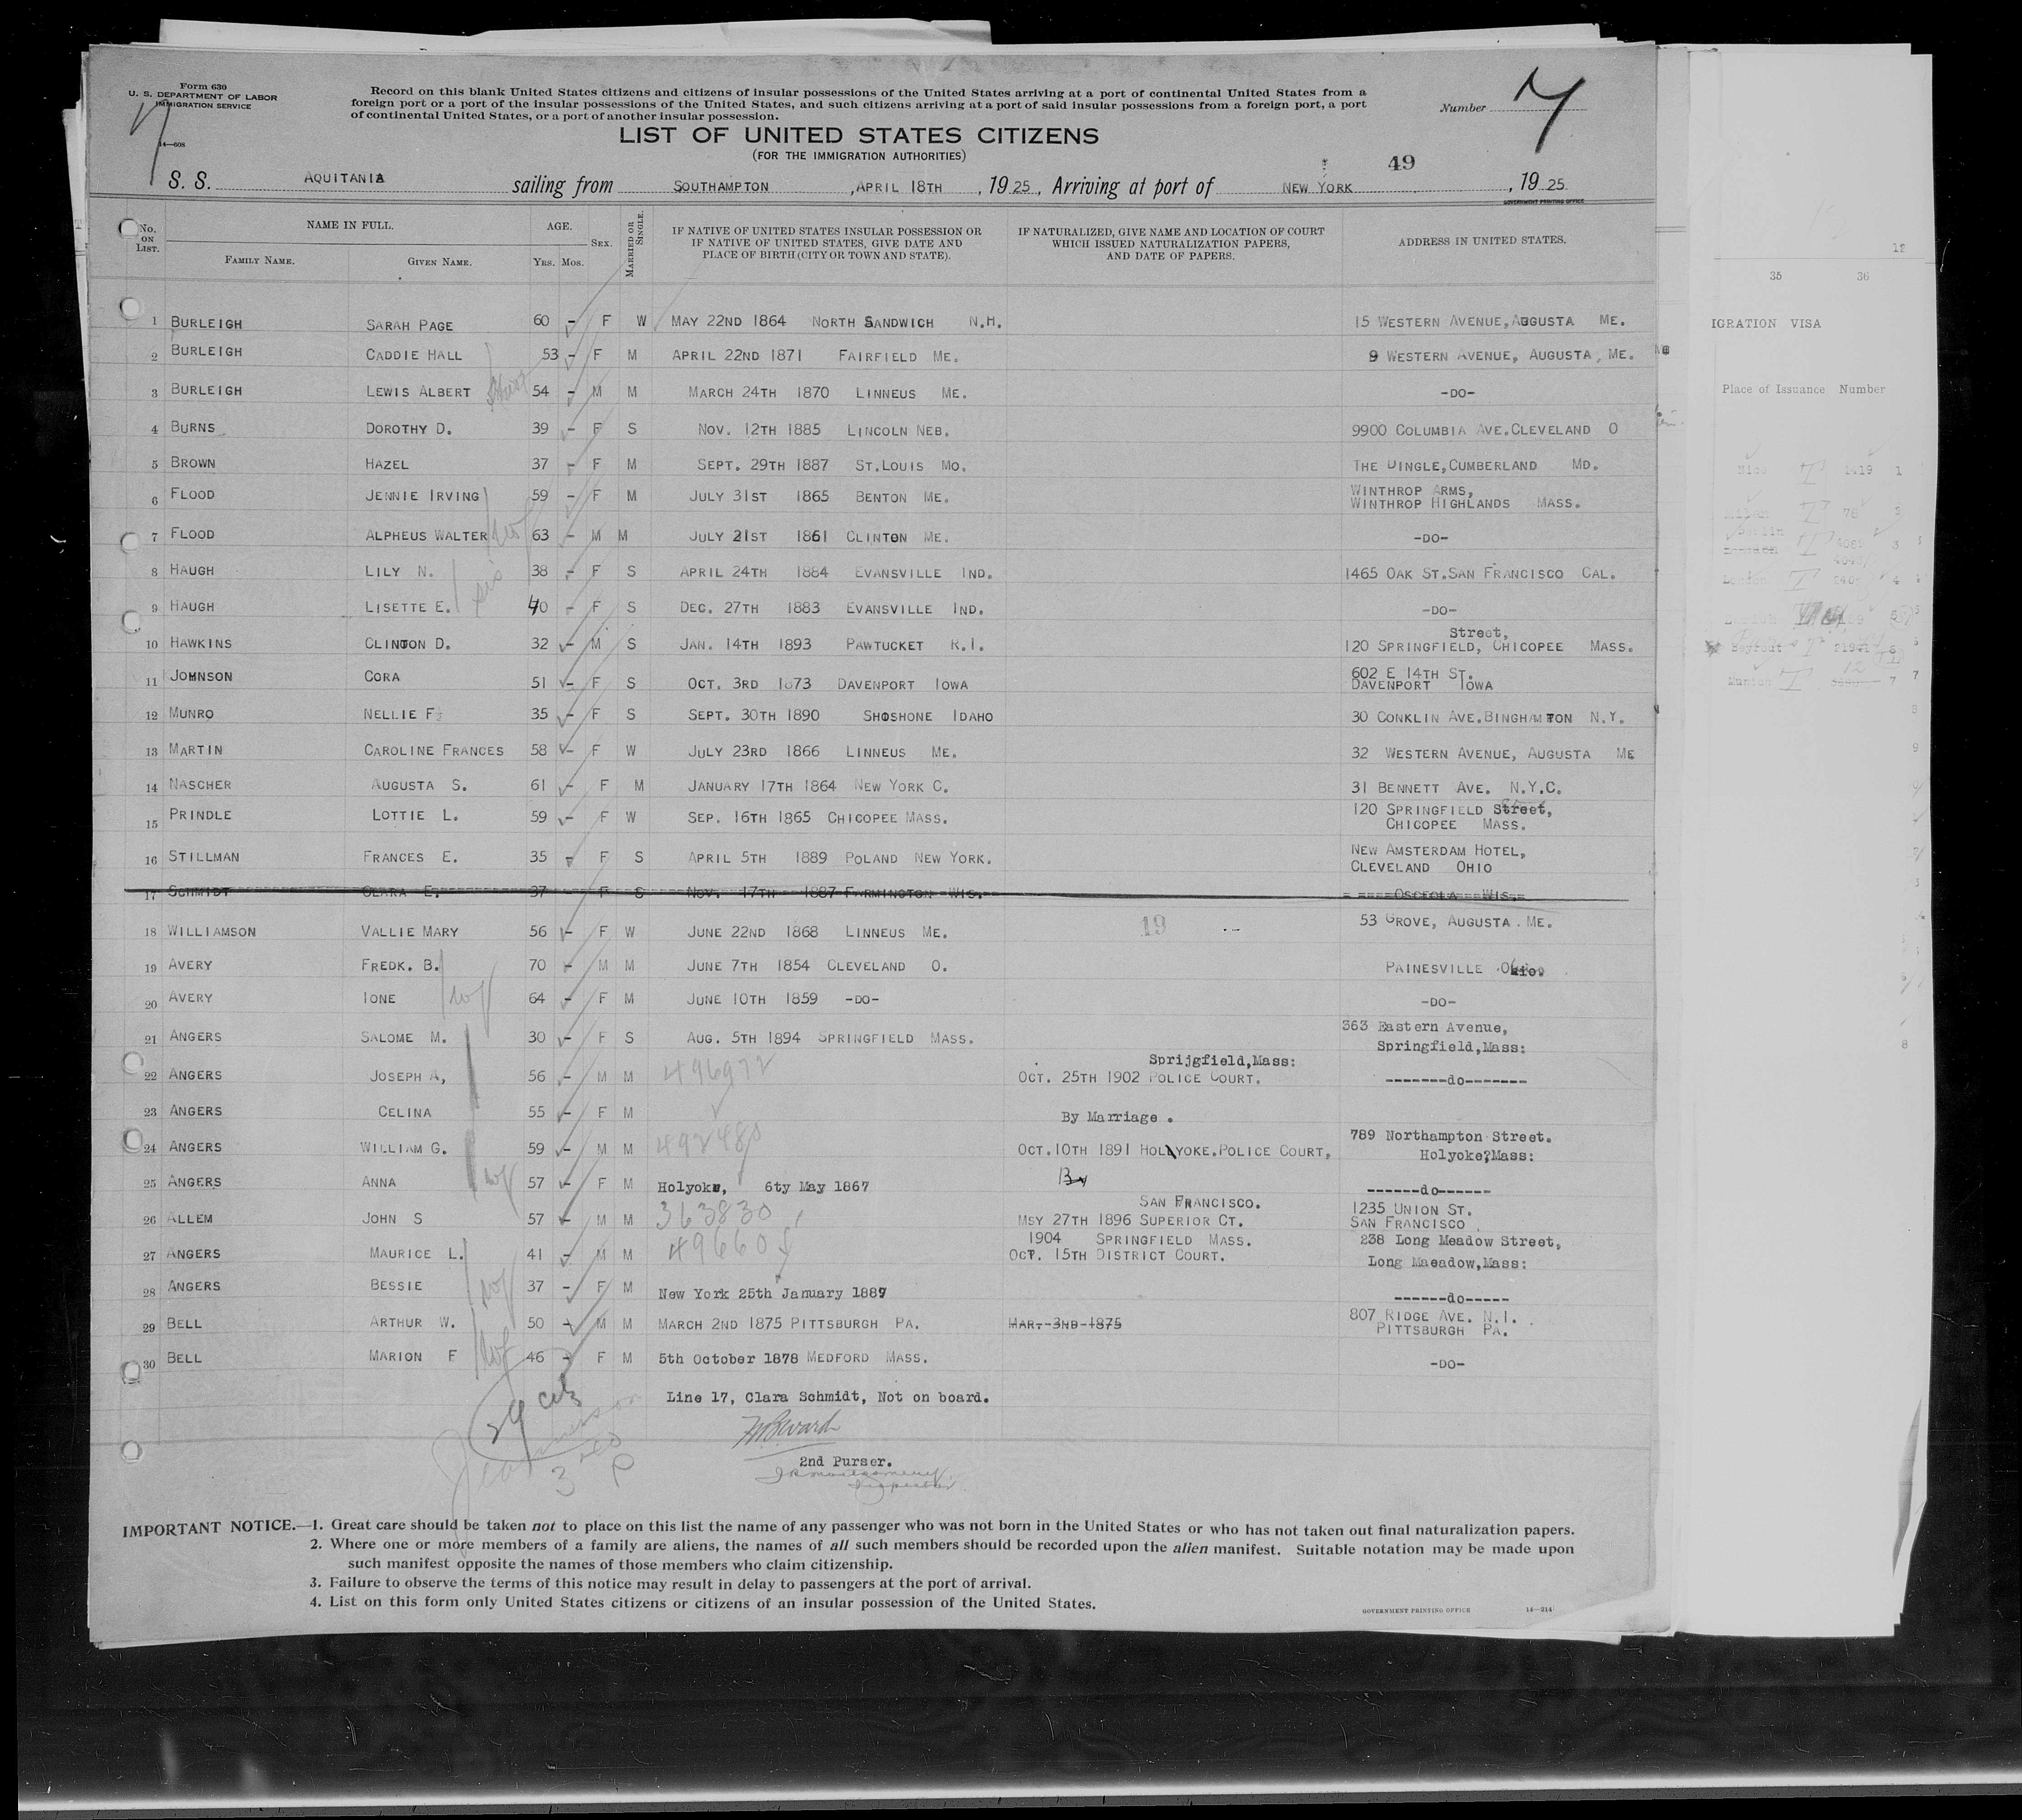 Form 630
U. S. DEPARTMENT OF LABOR
IMMIGRATION SERVICE
14—608
Record on this blank United States citizens and citizens of insular possessions of the United States arriving at a port of continental United States from a
foreign port or a port of the insular possessions of the United States, and such citizens arriving at a port of said insular possessions from a foreign port, a port
of continental United States, or a port of another insular possession.
Number
LIST OF UNITED STATES CITIZENS
(FOR THE IMMIGRATION AUTHORITIES)
49
S. S. AQUITANIA sailing from SOUTHAMPTON, APRIL 18TH, 1925, Arriving at port of NEW YORK, 1925.
GOVERNMENT PRINTING OFFICE
No. ON LIST. NAME IN FULL. FAMILY NAME. GIVEN NAME. AGE. YRS. MOS. SEX. MARRIED OR SINGLE. IF NATIVE OF UNITED STATES INSULAR POSSESSION OR IF NATIVE OF UNITED STATES, GIVE DATE AND PLACE OF BIRTH (CITY OR TOWN AND STATE). IF NATURALIZED, GIVE NAME AND LOCATION OF COURT WHICH ISSUED NATURALIZATION PAPERS, AND DATE OF PAPERS. ADDRESS IN UNITED STATES.
1 BURLEIGH SARAH PAGE 60 - F W MAY 22ND 1864 NORTH SANDWICH N.H. 15 WESTERN AVENUE, AUGUSTA ME.
2 BURLEIGH CADDIE HALL 53 - F M APRIL 22ND 1871 FAIRFIELD ME. 9 WESTERN AVENUE, AUGUSTA, ME.
3 BURLEIGH LEWIS ALBERT 54 - M M MARCH 24TH 1870 LINNEUS ME. -DO-
4 BURNS DOROTHY D. 39 - F S NOV. 12TH 1885 LINCOLN NEB. 9900 COLUMBIA AVE. CLEVELAND O
5 BROWN HAZEL 37 - F M SEPT. 29TH 1887 ST. LOUIS MO. THE DINGLE, CUMBERLAND MD.
6 FLOOD JENNIE IRVING 59 - F M JULY 31ST 1865 BENTON ME. WINTHROP ARMS,
WINTHROP HIGHLANDS MASS.
7 FLOOD ALPHEUS WALTER 63 - M M JULY 21ST 1861 CLINTON ME. -DO-
8 HAUGH LILY N. 38 - F S APRIL 24TH 1884 EVANSVILLE IND. 1465 OAK ST. SAN FRANCISCO CAL.
9 HAUGH LISETTE E. 40 - F S DEC. 27TH 1883 EVANSVILLE IND. -DO-
Street,
10 HAWKINS CLINTON D. 32 - M S JAN. 14TH 1893 PAWTUCKET R.I. 120 SPRINGFIELD, CHICOPEE MASS.
11 JOHNSON CORA 51 - F S OCT. 3RD 1873 DAVENPORT IOWA 602 E 14TH ST.
DAVENPORT IOWA
12 MUNRO NELLIE F. 35 - F S SEPT. 30TH 1890 SHOSHONE IDAHO 30 CONKLIN AVE. BINGHAMTON N.Y.
13 MARTIN CAROLINE FRANCES 58 - F W JULY 23RD 1866 LINNEUS ME. 32 WESTERN AVENUE, AUGUSTA ME
14 NASCHER AUGUSTA S. 61 - F M JANUARY 17TH 1864 NEW YORK C. 31 BENNETT AVE. N.Y.C.
15 PRINDLE LOTTIE L. 59 - F W SEP. 16TH 1865 CHICOPEE MASS. 120 SPRINGFIELD Street,
CHICOPEE MASS.
16 STILLMAN FRANCES E. 35 - F S APRIL 5TH 1889 POLAND NEW YORK. NEW AMSTERDAM HOTEL,
CLEVELAND OHIO
17 SCHMIDT CLARA E. 37 - F S NOV. 17TH 1887 FARMINGTON WIS. OSCEOLA WIS.
18 WILLIAMSON VALLIE MARY 56 - F W JUNE 22ND 1868 LINNEUS ME. 19 53 GROVE, AUGUSTA. ME.
19 AVERY FREDK. B. 70 - M M JUNE 7TH 1854 CLEVELAND O. PAINESVILLE Ohio.
20 AVERY IONE 64 - F M JUNE 10TH 1859 -DO- -DO-
21 ANGERS SALOME M. 30 - F S AUG. 5TH 1894 SPRINGFIELD MASS. 363 Eastern Avenue,
Springfield,Mass:
Sprijgfield,Mass:
22 ANGERS JOSEPH A, 56 - M M 496972 OCT. 25TH 1902 POLICE COURT. -------do-------
23 ANGERS CELINA 55 - F M By Marriage .
24 ANGERS WILLIAM G. 59 - M M 492480 OCT. 10TH 1891 HOLYOKE. POLICE COURT, 789 Northampton Street.
Holyoke?Mass:
25 ANGERS ANNA 57 - F M Holyoke, 6ty May 1867 By ------do------
SAN FRANCISCO.
26 ALLEM JOHN S 57 - M M 363830 MSY 27TH 1896 SUPERIOR CT. 1235 UNION ST.
SAN FRANCISCO.
1904 SPRINGFIELD MASS.
27 ANGERS MAURICE L. 41 - M M 49660 OCT. 15TH DISTRICT COURT. 238 Long Meadow Street,
Long Maeadow,Mass:
28 ANGERS BESSIE 37 - F M New York 25th January 1887 ------do-----
29 BELL ARTHUR W. 50 - M M MARCH 2ND 1875 PITTSBURGH PA. MAR.-3ND-1875 807 RIDGE AVE. N.I.
PITTSBURGH PA.
30 BELL MARION F 46 - F M 5th October 1878 MEDFORD MASS. -DO-
Line 17, Clara Schmidt, Not on board.
29 cits
2nd Purser.
IMPORTANT NOTICE.—1. Great care should be taken not to place on this list the name of any passenger who was not born in the United States or who has not taken out final naturalization papers.
2. Where one or more members of a family are aliens, the names of all such members should be recorded upon the alien manifest. Suitable notation may be made upon
such manifest opposite the names of those members who claim citizenship.
3. Failure to observe the terms of this notice may result in delay to passengers at the port of arrival.
4. List on this form only United States citizens or citizens of an insular possession of the United States.
GOVERNMENT PRINTING OFFICE 14—314
12
35 36
IGRATION VISA
Place of Issuance Number